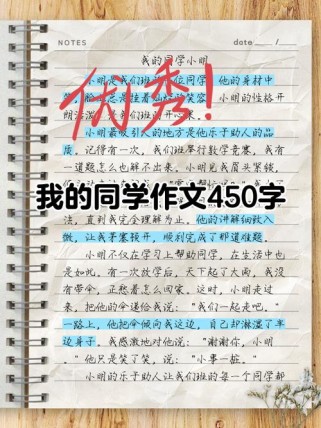 NOTES date
我的同学小明
小明是我们班 位同学,他的身材中
笑容,小明的性格开
朗
优秀!
小明最吸引人的地方是他乐于助人的品
质。记得有一次,我们班举行数学竞赛,我有
一道题怎么也解不出来。小明见我眉头紧锁,
我的同学作文450字
法,直到我完全理解为止。他的讲解细致入
微,让我茅塞顿开,顺利完成了那道难题。
小明不仅在学习上帮助同学,在生活中也
是如此。有一次放学后,天下起了大雨,我没
有带伞,正愁着怎么回家。这时,小明走过
来,把他的伞递给我说:“我们一起走吧。”
一路上,他把伞倾向我这边,自己却淋湿了半
边身子。我感激地对他说:“谢谢你,小明
。”他只是笑了笑,说:“小事一桩。”
小明的乐于助人让我们班的每一个同学都